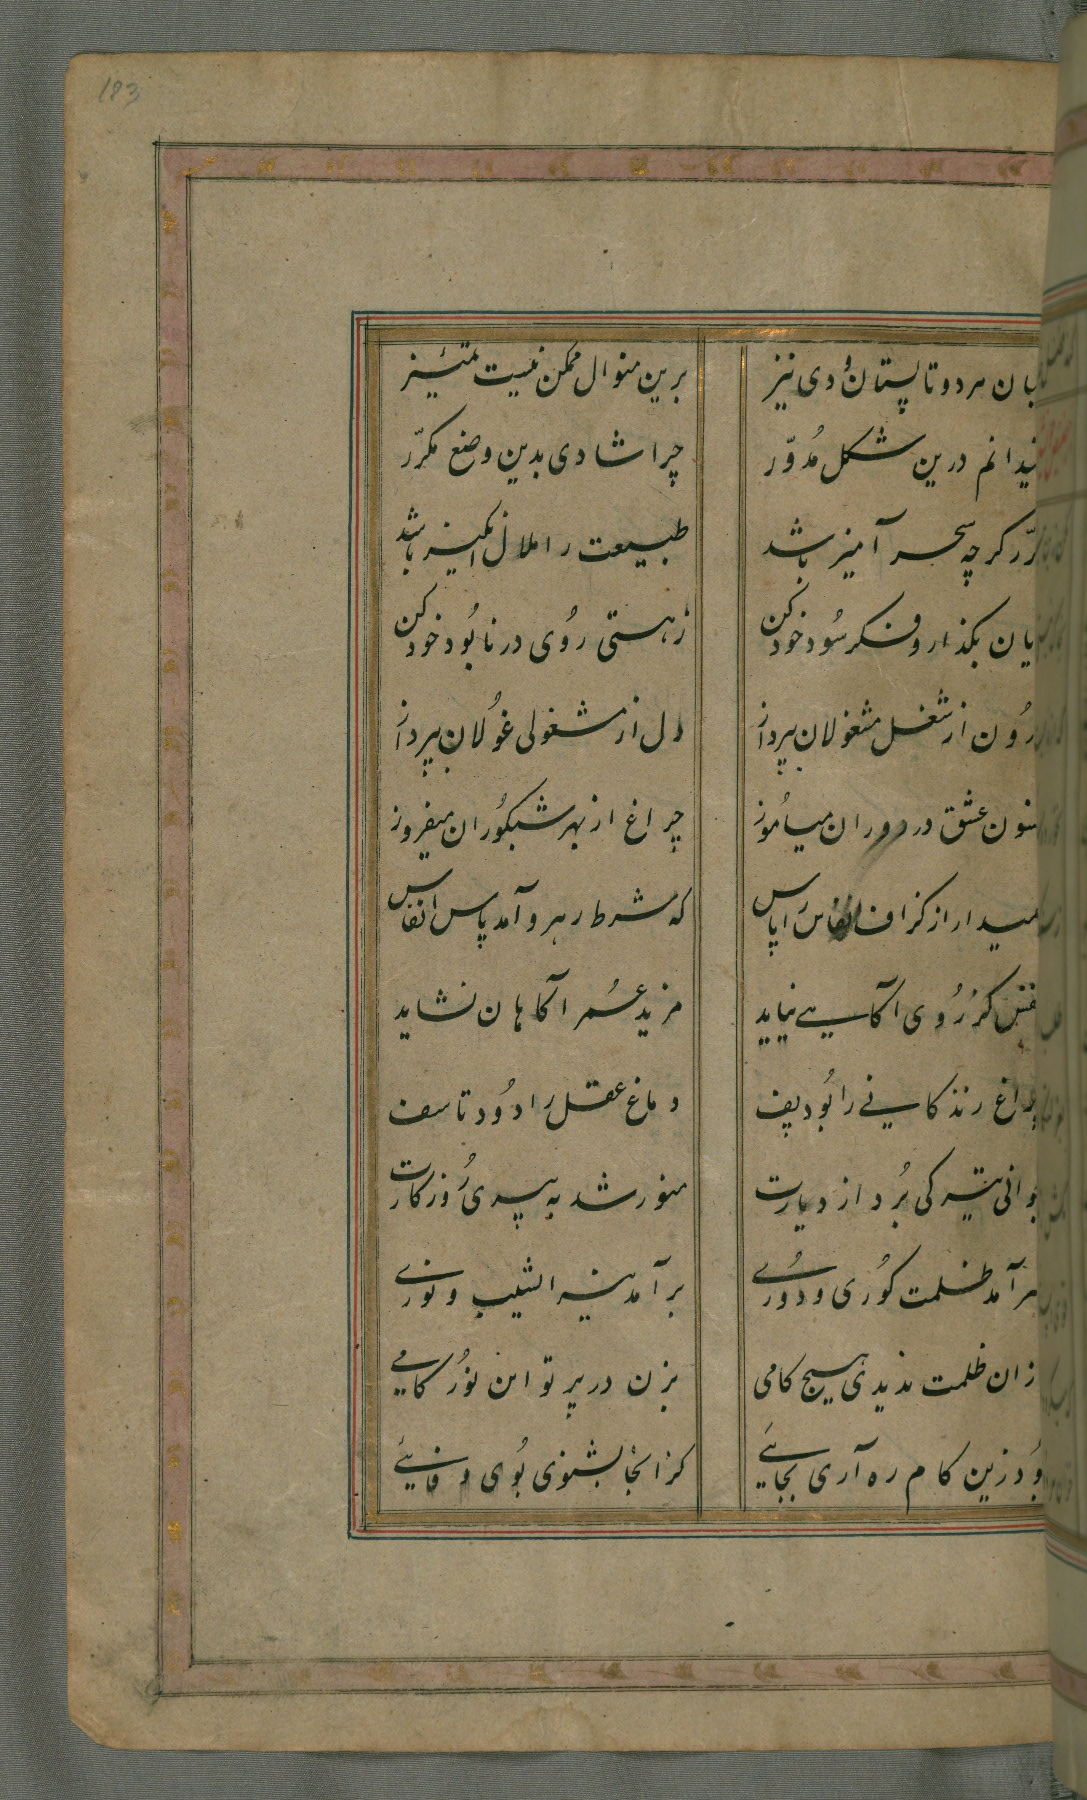 183
بان هر دو تابستان و دی نیز برین منوال ممکن نیست تمئیز
ندانم درین شکل مُدوّر چرا شادی بدین وضع مکرّر
کرچه سحر آمیز باشد طبیعت را ملال انکیز باشد
بکذار و فکر سُود خود کن زهستی رُوی در نابُود خود کن
از شغل مشغولان بپرداز دل از مشغولی غولان بپرداز
عشق در دوران میاموز چراغ از بهر شبکوران میفروز
میدار از کزاف انفاس را پاس که شرط رهرو آمد پاس انفاس
کز رُوی آکاهی نیاید مزید عمر آکاهان نشاید
چراغ زندکانی را بُود پف دماغ عقل را دُود تاسف
جوانی تیرکی بُرد از دیارت منور شد به پیری رُوزکارت
برآمد ظلمت کُوری و دُوری برآمد نیر الشیب نوری
زان ظلمت ندیدی هیچ کامی بزن در پرتو این نُور کامی
بُود زین کام ره آری بجایی کز آنجا بشنوی بُوی وفایی